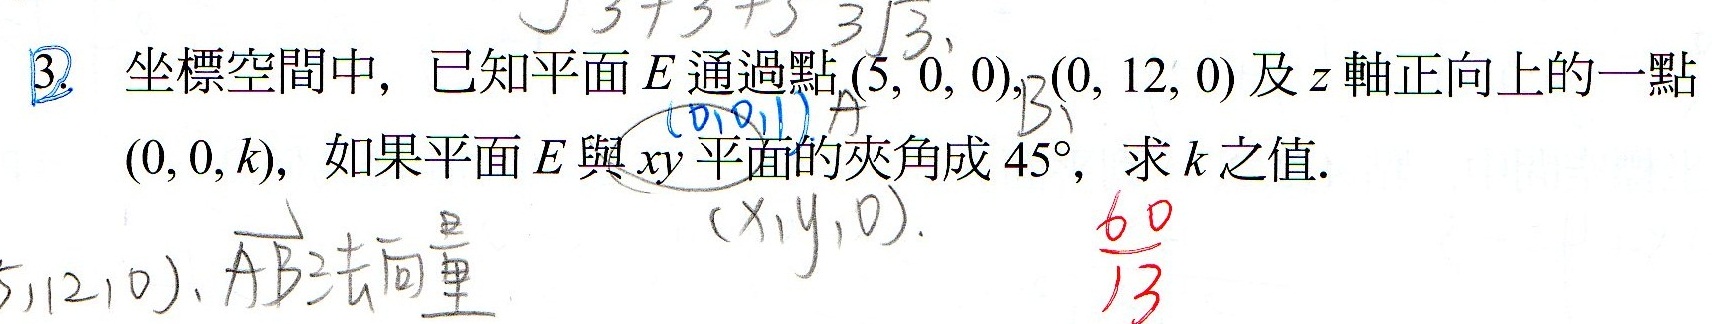 √3+3+3 3√3,
3. 坐標空間中，已知平面 E 通過點 (5, 0, 0), (0, 12, 0) 及 z 軸正向上的一點
(0,0,1) A B
(0, 0, k)，如果平面 E 與 xy 平面的夾角成 45°，求 k 之值.
(x,y,0).
60
13
5,12,0)、AB 法向量